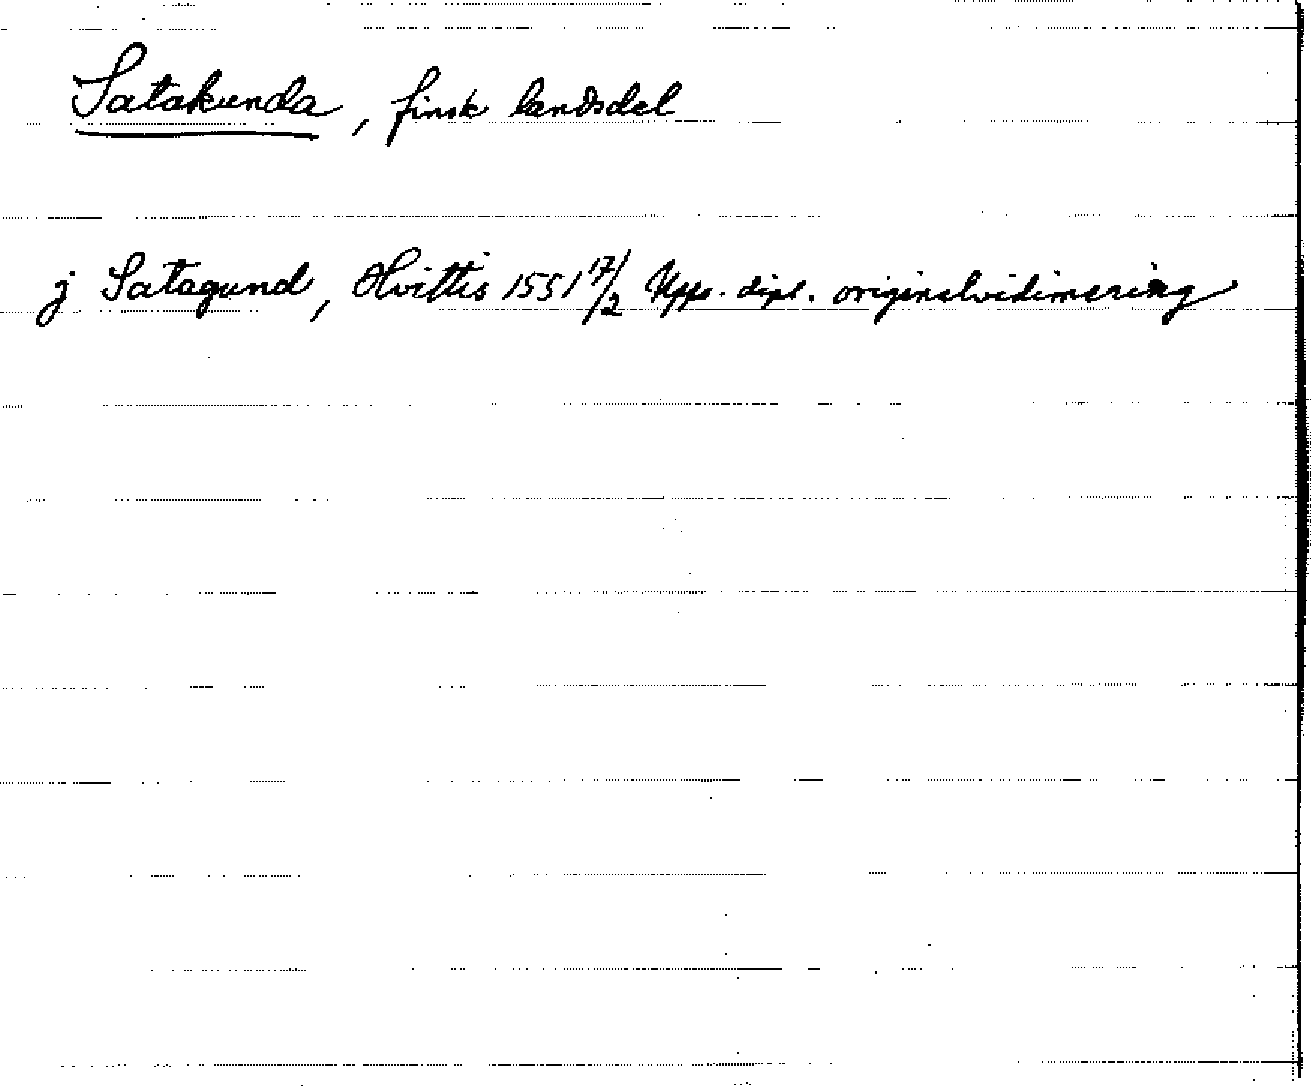 Satakunda, finsk landsdel
j Satagund, Hvittis 1551 17/2 Upps. dipl. originalvidimering